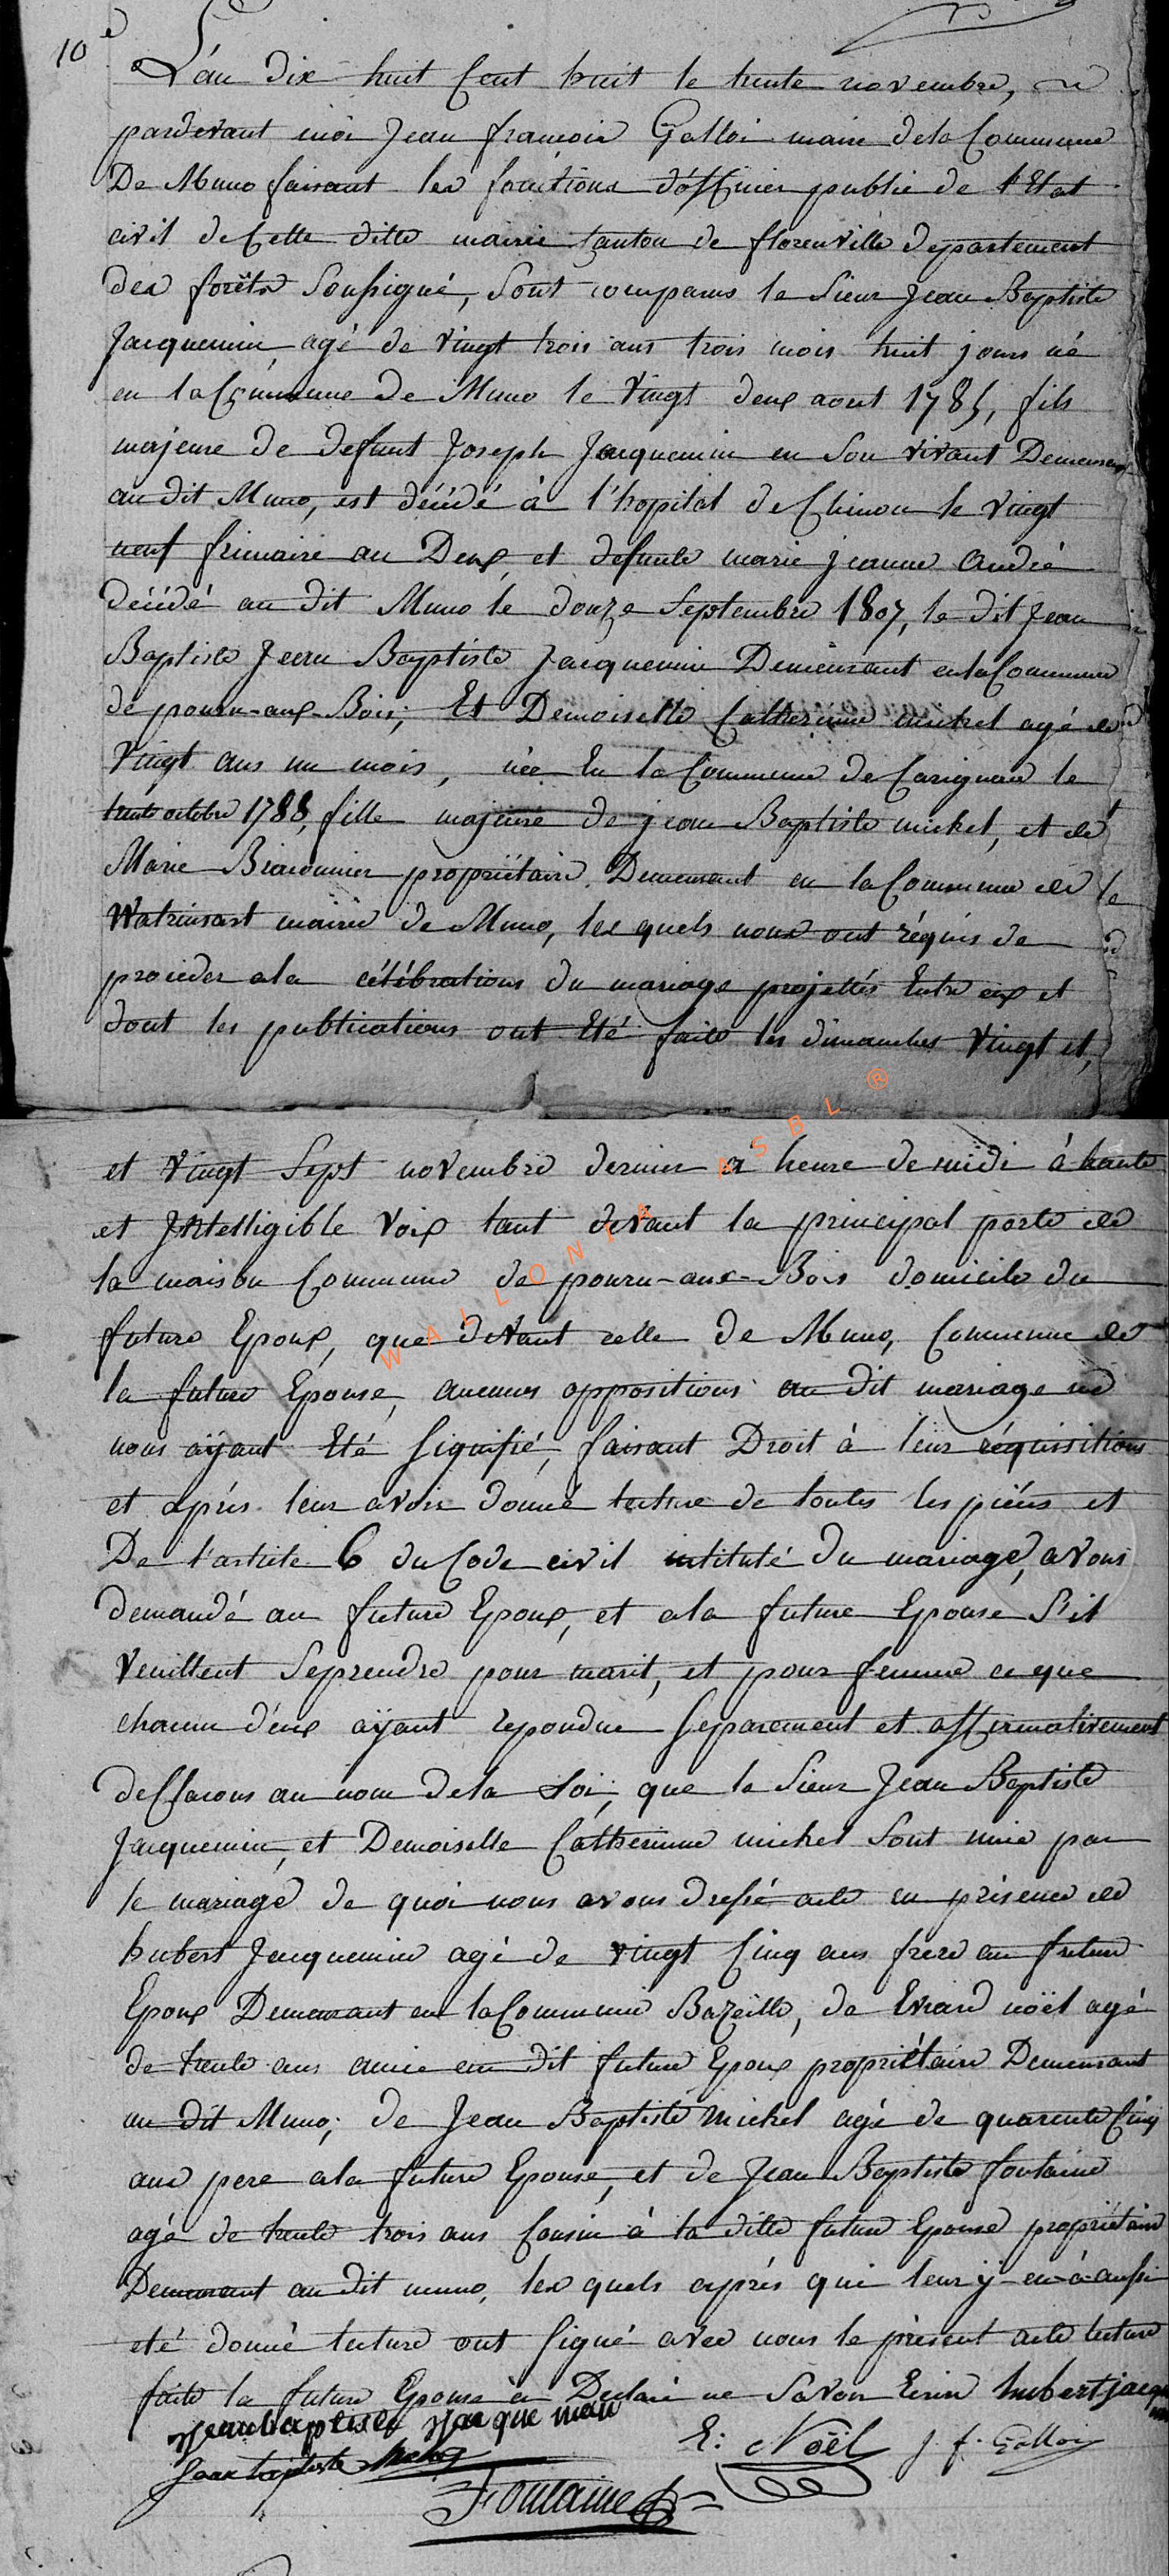 10e
L'an dix huit Cent huit le trente novembre,
pardevant moi Jean françois Galloi maire dela Commune
De Muno faisant les fonctions d'officier public de l'Etat
civil de Cette ditte mairie Canton de florenville departement
des forêts soussigné, sont comparus le Sieur Jean Baptiste
Jacquemin, agé de vingt trois ans trois mois huit jours né
en la Commune de Muno le vingt deux aout 1785, fils
majeure de defunt Joseph Jacquemin en Son vivant Demeurant
au dit Muno, est décédé à l'hopital de Chinon le vingt
neuf frimaire an Deux, et defunte marie jeanne André
décédé au dit Muno le douze Septembre 1807, le dit Jean
Baptiste Jean Baptiste Jacquemin Demeurant en la Commune
de pouru-aux-Bois; Et Demoiselle Catherinne michel agé de
Vingt ans un mois, née En la Commune de Carignan le
trente octobre 1788, fille majeure de jean Baptiste michel, et de
Marie propriétaire Demeurant en la Commune de
Watrinsart mairie de Muno, les quels nous ont réquis de
proceder ala célébrations du mariage projettés Entre eux et
dont les publications ont Eté faite les dimanches Vingt et,
et vingt Sept novembre dernier a heure de midi à haute
et Intelligible Voix tant devant la principal porte de
la maison Commune de pouru-aux-Bois domicile du
future Epoux, que devant celle de Muno, Commune de
la future Epouse, aucunes oppositions au dit mariage ne
nous aÿant Eté Signifié, faisant Droit à leur réquissitions
et aprés leur avoir donné lecture de toutes les piéces et
De l'article 6 du Code civil intitulé Du mariage, avons
demandé au future Epoux, et ala future Epouse S'il
Veuillent Seprendre pour marit, et pour femme ce que
chacun d'eux aÿant repondue Separement et affirmativement
deClarons au nom dela Loi, que le Sieur Jean Baptiste
Jacquemin, et Demoiselle Catherinne michel Sont unie par
le mariage de quoi nous avons dressé acte en présence de
hubert Jacquemin agé de vingt Cinq ans frere au future
Epoux Demeurant en la Commune Bazeille, de Evrard noël agé
de trente ans amie au dit future Epoux propriétaire Demeurant
au dit Muno; de Jean Baptiste Michel agé de quarente Cinq
ans pere ala future Epouse, et de Jean Baptiste fontaine
agé de trente trois ans Cousin à la ditte future Epouse propriétaire
Demeurant au dit muno, les quels aprés qui leur ÿ en à aussi
eté donné lecture ont Signé avec nous le présent acte lecture
faite la future Epouse à Déclaré ne Savoir Ecrire hubert jacque
Jeanbaptiste Jacqueman
E: Noël J. f. Galloi
Jean baptiste michel
Fontaine
WALLONIA ASBL ®